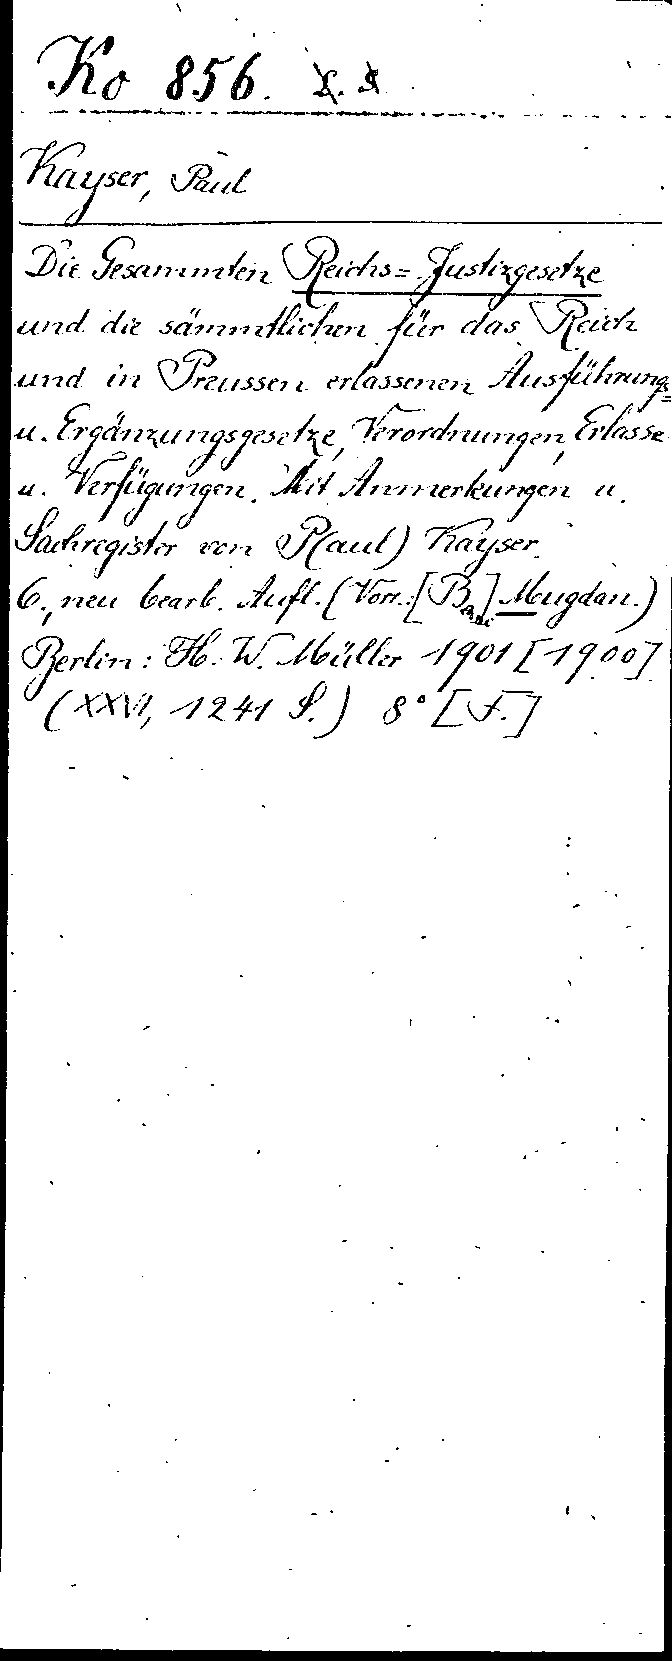 Ko 856.
Kayser, Paul
Die Gesammten Reichs=Justizgesetze
und die sämmtlichen für das Reich
und in Preussen erlassenen Ausführungs=
u. Ergänzungsgesetze, Verordnungen, Erlasse
u. Verfügungen. Mit Anmerkungen u.
Sachregister von P(aul) Kayser.
6., neu bearb. Aufl. (Vorr.: [B.] Mugdan.)
Berlin: H. W. Müller 1901 [1900]
(XXVI, 1241 S.) 8° [F.]